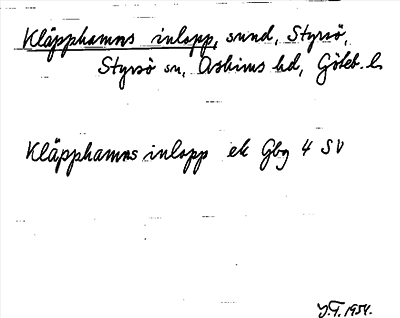 Kläpphamns inlopp, sund, Styrsö,
Styrsö sn, Askims hd, Göteb. l.
Kläpphamns inlopp ek Gbg 4 SV
J.T. 1954.